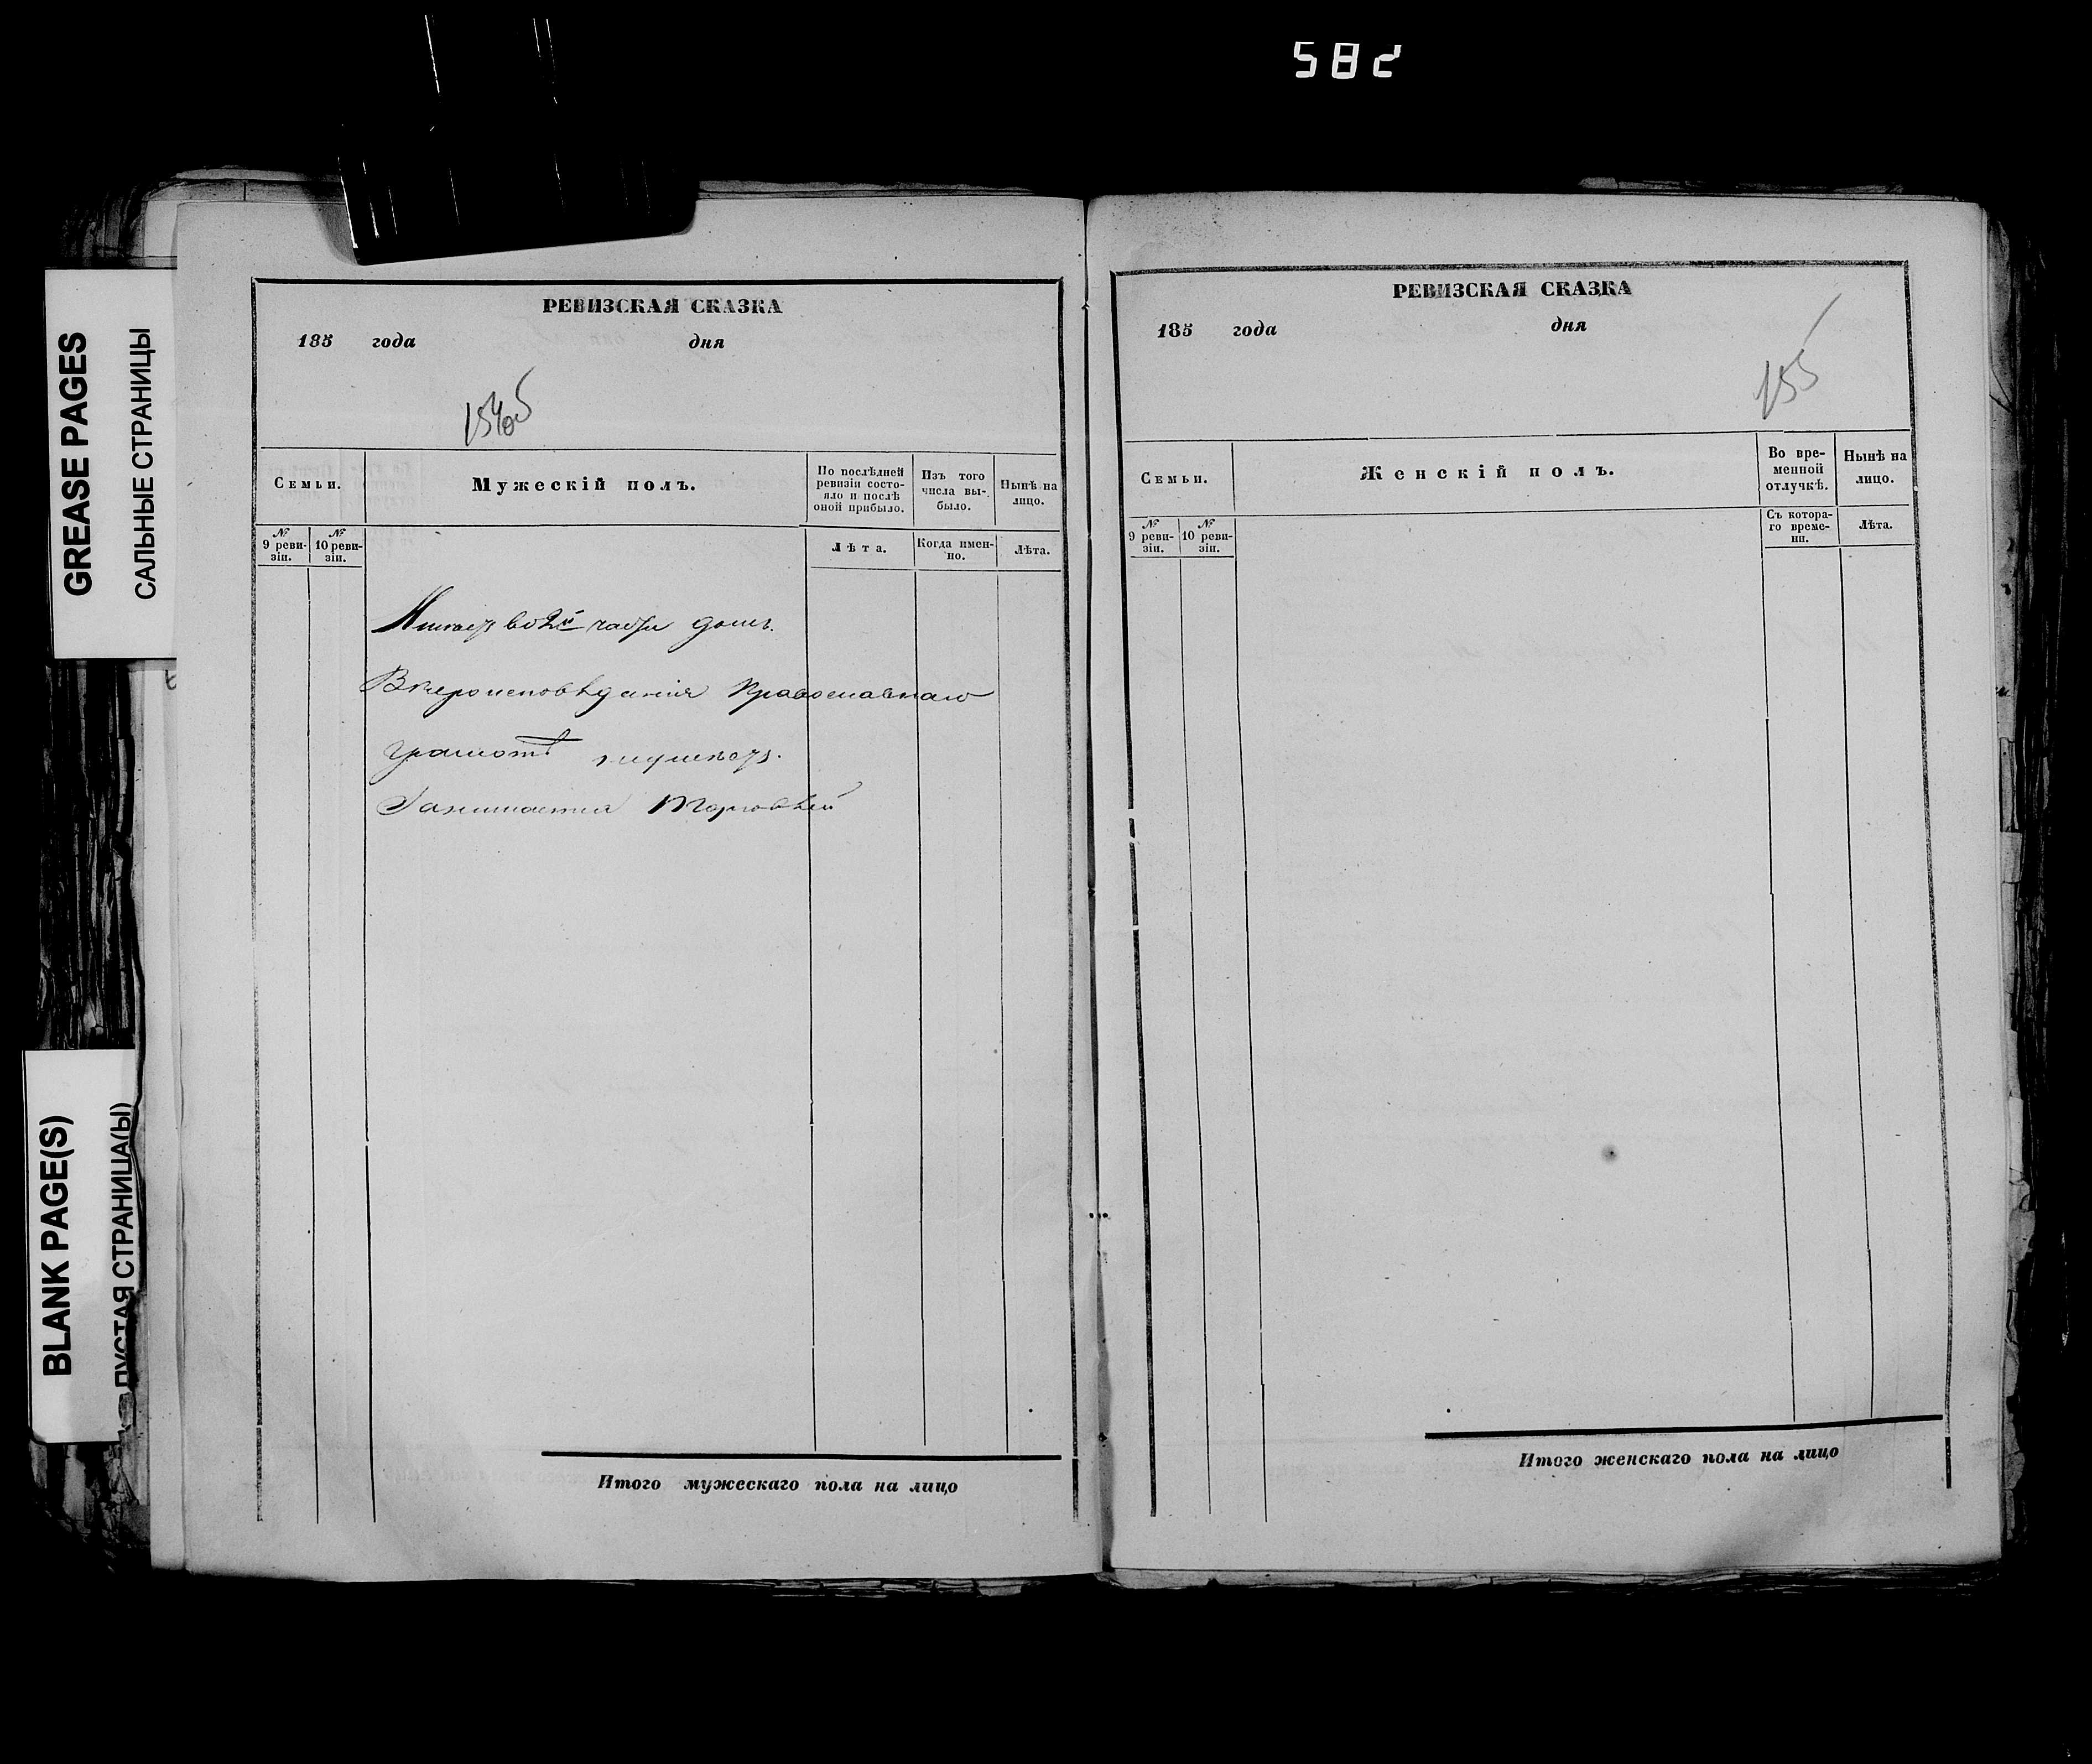 582
GREASE PAGES
САЛЬНЫЕ СТРАНИЦЫ
BLANK PAGE(S)
ПУСТАЯ СТРАНИЦА(Ы)
РЕВИЗСКАЯ СКАЗКА
185 года дня
154об
Семьи.
Мужескій полъ.
По послѣдней ревизіи состояло и послѣ оной прибыло.
Изъ того числа выбыло.
Нынѣ на лицо.
№ 9 ревизіи.
№ 10 ревизіи.
Лѣта.
Когда именно.
Лѣта.
Имѣетъ во 2й части домъ.
Вѣроисповѣданія Православнаго
грамотѣ
Занимается Торговлей
Итого мужескаго пола на лицо
РЕВИЗСКАЯ СКАЗКА
185 года дня
155
Семьи.
Женскій полъ.
Во временной отлучкѣ.
Нынѣ на лицо.
№ 9 ревизіи.
№ 10 ревизіи.
Съ котораго времени.
Лѣта.
Итого женскаго пола на лицо